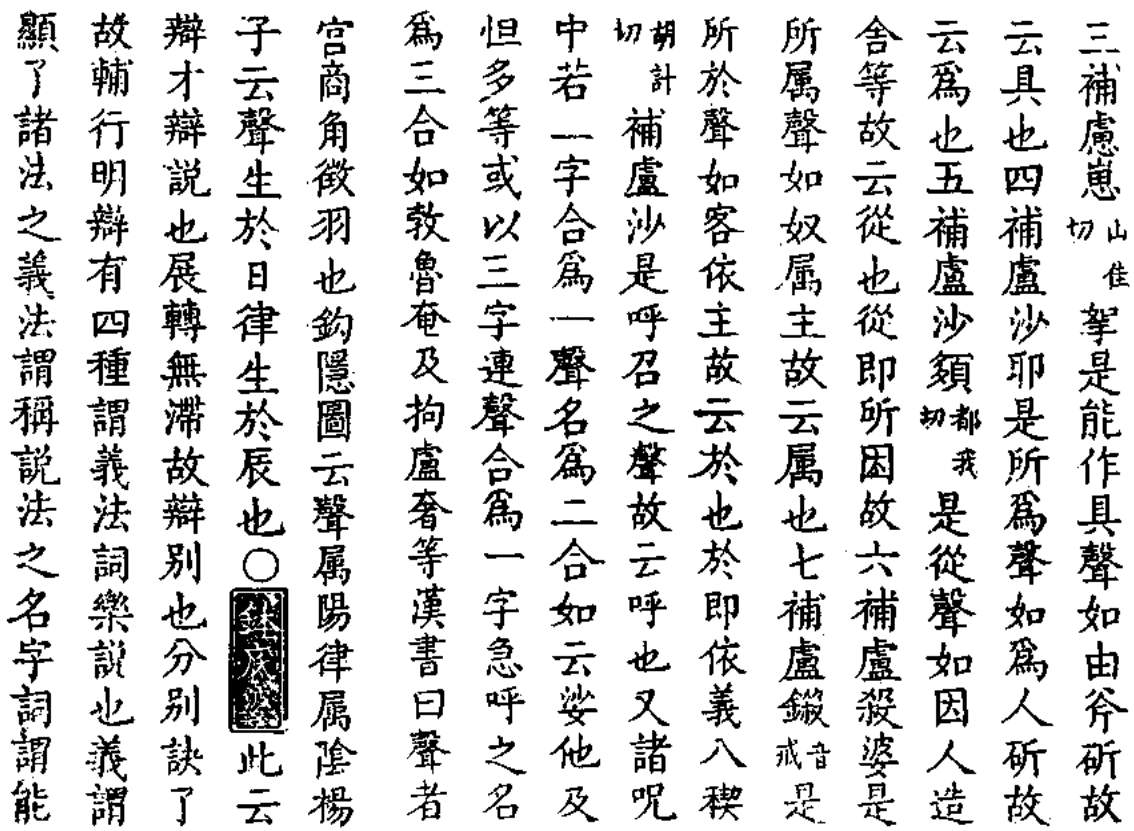 三補慮崽山佳切拏是能作具聲如由斧斫故
云具也四補盧沙耶是所爲聲如爲人斫故
云爲也五補盧沙䫂都我切是從聲如因人造
舍等故云從也從即所因故六補盧殺婆是
所属聲如奴属主故云属也七補盧鎩音戒是
所於聲如客依主故云於也於即依義八稧
胡計切補盧沙是呼召之聲故云呼也又諸呪
中若一字合爲一聲名爲二合如云娑他及
怛多等或以三字連聲合爲一字急呼之名
爲三合如敎魯奄及拘盧奢等漢書曰聲者
宮商角徵羽也鈎隱圖云聲属陽律属陰楊
子云聲生於日律生於辰也○此云
辯才辯説也展轉無滯故辯別也分別訣了
故輔行明辯有四種謂義法詞樂説也義謂
顯了諸法之義法謂稱説法之名字詞謂能